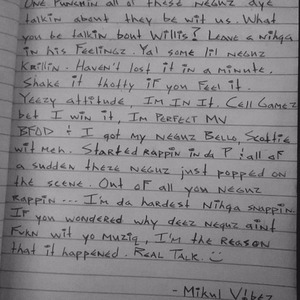 One Punchin all of these Neguz aye
talkin about they be wit us. What
you be talkin bout Willis? Leave a Nihga
in his Feelingz. Ya'l some lil Neguz
Krillin. Haven't lost it in a minute.
Shake it thotty if you Feel it.
Yeezy attitude, I'm In It. Cell Gamez
bet I win it, Im Perfect My
BFOD & I got my Neguz Bello, Scottie
wit meh. Started rappin in da P & all of
a sudden these neguz just popped on
the scene. Out of all you Neguz
Rappin... I'm da hardest Nihga snappin.
If you wondered why deez Neguz aint
Fukn wit yo muziq, I'm the Reason
that it happened. Real Talk. ☺
- Mikul Vibez